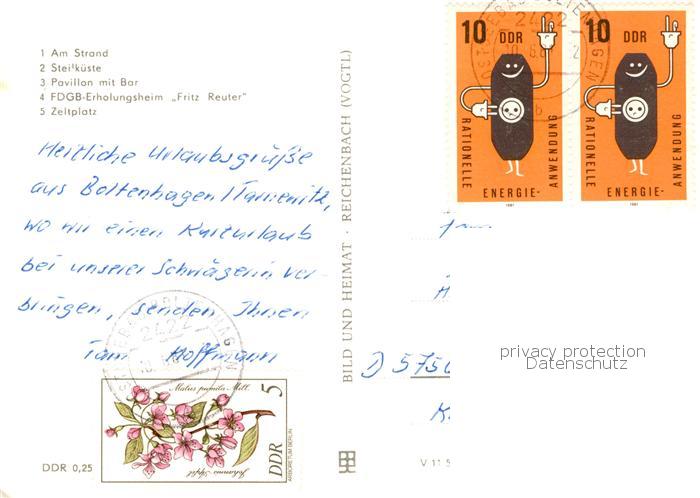 1 Am Strand
2 Steilküste
3 Pavillon mit Bar
4 FDGB-Erholungsheim „Fritz Reuter"
5 Zeltplatz
Herzliche Urlaubsgrüße
aus Boltenhagen/Tarnewitz,
wo wir einen Kurzurlaub
bei unserer Schwägerin ver-
bringen, senden Ihnen
Fam. Hoffmann
DDR 0,25
Malus pumila Mill.
5
DDR
ARBORETUM BERLIN
BILD UND HEIMAT · REICHENBACH (VOGTL)
2422
10 DDR
RATIONELLE
ENERGIE-
ANWENDUNG
1981
10 DDR
RATIONELLE
ENERGIE-
ANWENDUNG
1981
2422
OSTSEEBAD BOLTENHAGEN
b
D 5750
privacy protection
Datenschutz
V 11 5